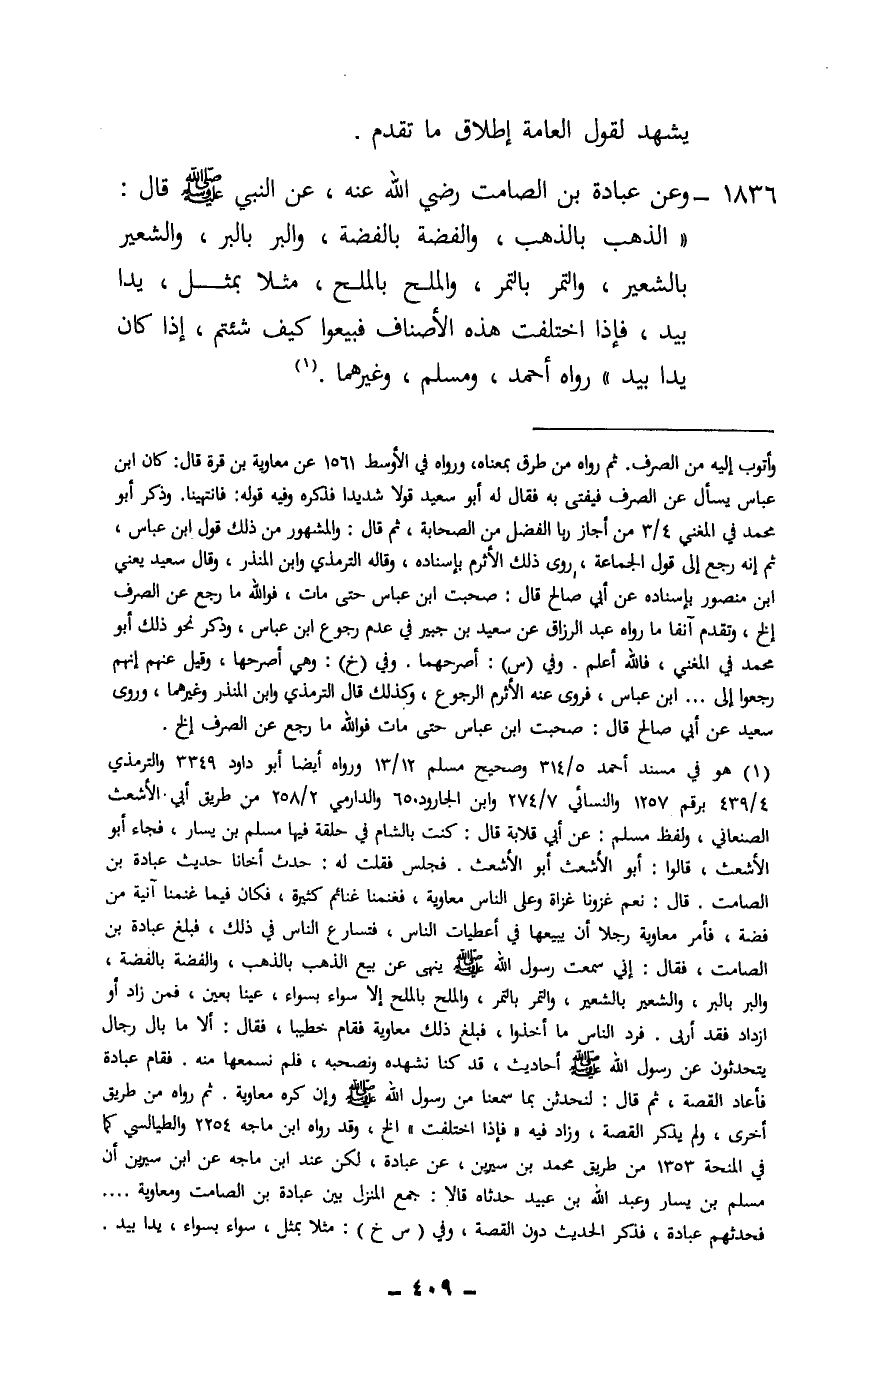 يشهد لقول العامة إطلاق ما تقدم .
١٨٣٦ – وعن عبادة بن الصامت رضي الله عنه ، عن النبي ﷺ قال :
« الذهب بالذهب ، والفضة بالفضة ، والبر بالبر ، والشعير
بالشعير ، والتمر بالتمر ، والملح بالملح ، مثلا بمثل ، يدا
بيد ، فإذا اختلفت هذه الأصناف فبيعوا كيف شئتم ، إذا كان
يدا بيد » رواه أحمد ، ومسلم ، وغيرهما .(١)
وأتوب إليه من الصرف. ثم رواه من طرق بمعناه، ورواه في الأوسط ١٥٦١ عن معاوية بن قرة قال: كان ابن
عباس يسأل عن الصرف فيفتى به فقال له أبو سعيد قولا شديدا فذكره وفيه قوله: فانتهينا. وذكر أبو
محمد في المغني ٣/٤ من أجاز ربا الفضل من الصحابة ، ثم قال : والمشهور من ذلك قول ابن عباس ،
ثم إنه رجع إلى قول الجماعة ، روى ذلك الأثرم بإسناده ، وقاله الترمذي وابن المنذر ، وقال سعيد يعني
ابن منصور بإسناده عن أبي صالح قال : صحبت ابن عباس حتى مات ، فوالله ما رجع عن الصرف
إلخ ، وتقدم آنفا ما رواه عبد الرزاق عن سعيد بن جبير في عدم رجوع ابن عباس ، وذكر نحو ذلك أبو
محمد في المغني ، فالله أعلم . وفي (س) : أصرحهما . وفي (خ) : وهي أصرحها ، وقيل عنهم إنهم
رجعوا إلى ... ابن عباس ، فروى عنه الأثرم الرجوع ، وكذلك قال الترمذي وابن المنذر وغيرهما ، وروى
سعيد عن أبي صالح قال : صحبت ابن عباس حتى مات فوالله ما رجع عن الصرف إلخ .
(١) هو في مسند أحمد ٣١٤/٥ وصحيح مسلم ١٣/١٢ ورواه أيضا أبو داود ٣٣٤٩ والترمذي
٤٣٩/٤ برقم ١٢٥٧ والنسائي ٢٧٤/٧ وابن الجارود ٦٥٠ والدارمي ٢٥٨/٢ من طريق أبي الأشعث
الصنعاني ، ولفظ مسلم : عن أبي قلابة قال : كنت بالشام في حلقة فيها مسلم بن يسار ، فجاء أبو
الأشعث ، قالوا : أبو الأشعث أبو الأشعث . فجلس فقلت له : حدث أخانا حديث عبادة بن
الصامت . قال : نعم غزونا غزاة وعلى الناس معاوية ، فغنمنا غنائم كثيرة ، فكان فيما غنمنا آنية من
فضة ، فأمر معاوية رجلا أن يبيعها في أعطيات الناس ، فتسارع الناس في ذلك ، فبلغ عبادة بن
الصامت ، فقال : إني سمعت رسول الله ﷺ ينهى عن بيع الذهب بالذهب ، والفضة بالفضة ،
والبر بالبر ، والشعير بالشعير ، والتمر بالتمر ، والملح بالملح إلا سواء بسواء ، عينا بعين ، فمن زاد أو
ازداد فقد أربى . فرد الناس ما أخذوا ، فبلغ ذلك معاوية فقام خطيبا ، فقال : ألا ما بال رجال
يتحدثون عن رسول الله ﷺ أحاديث ، قد كنا نشهده ونصحبه ، فلم نسمعها منه . فقام عبادة
فأعاد القصة ، ثم قال : لنحدثن بما سمعنا من رسول الله ﷺ وإن كره معاوية . ثم رواه من طريق
أخرى ، ولم يذكر القصة ، وزاد فيه « فإذا اختلفت » الخ ، وقد رواه ابن ماجه ٢٢٥٤ والطيالسي كما
في المنحة ١٣٥٣ من طريق محمد بن سيرين ، عن عبادة ، لكن عند ابن ماجه عن ابن سيرين أن
مسلم بن يسار وعبد الله بن عبيد حدثاه قالا : جمع المنزل بين عبادة بن الصامت ومعاوية ....
فحدثهم عبادة ، فذكر الحديث دون القصة ، وفي ( س خ ) : مثلا بمثل ، سواء بسواء ، يدا بيد .
– ٤٠٩ –